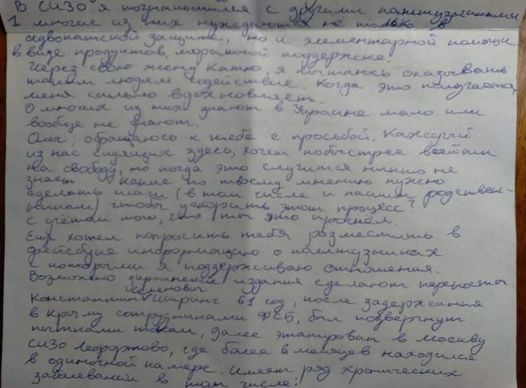 В СИЗО я познакомился с другими политузниками
и многие из них нуждаются не только в
адвокатской защите, но и элементарной помощи
в виде продуктов, моральной поддержке.
Через свою жену Катю, я пытаюсь оказывать
таким людям содействие. Когда это получается,
меня сильно вдохновляет.
О многих из них знают в Украине мало или
вообще не знают.
Олег, обращаюсь к тебе с просьбой. Каждый
из нас сидящих здесь, хочет побыстрее выйти
на свободу, но когда это случится никто не
знает какие по твоему мнению нужно
сделать шаги (в том числе и нашим родствен-
никам) чтобы ускорить этот процесс?
с учетом того, что ты это прошел.
Еще хотел попросить тебя разместить в
фейсбуке информацию о политузниках
с которыми я поддерживаю отношения.
Возможно украинские издания сделают перепосты
Семенович
Константин Ширинг 61 год, после задержания
в Крыму сотрудниками ФСБ, был подвергнут
пыткам током, далее этапирован в Москву
СИЗО Лефортово, где более 6 месяцев находился
в одиночной камере. Имеет ряд хронических
заболеваний в том числе: